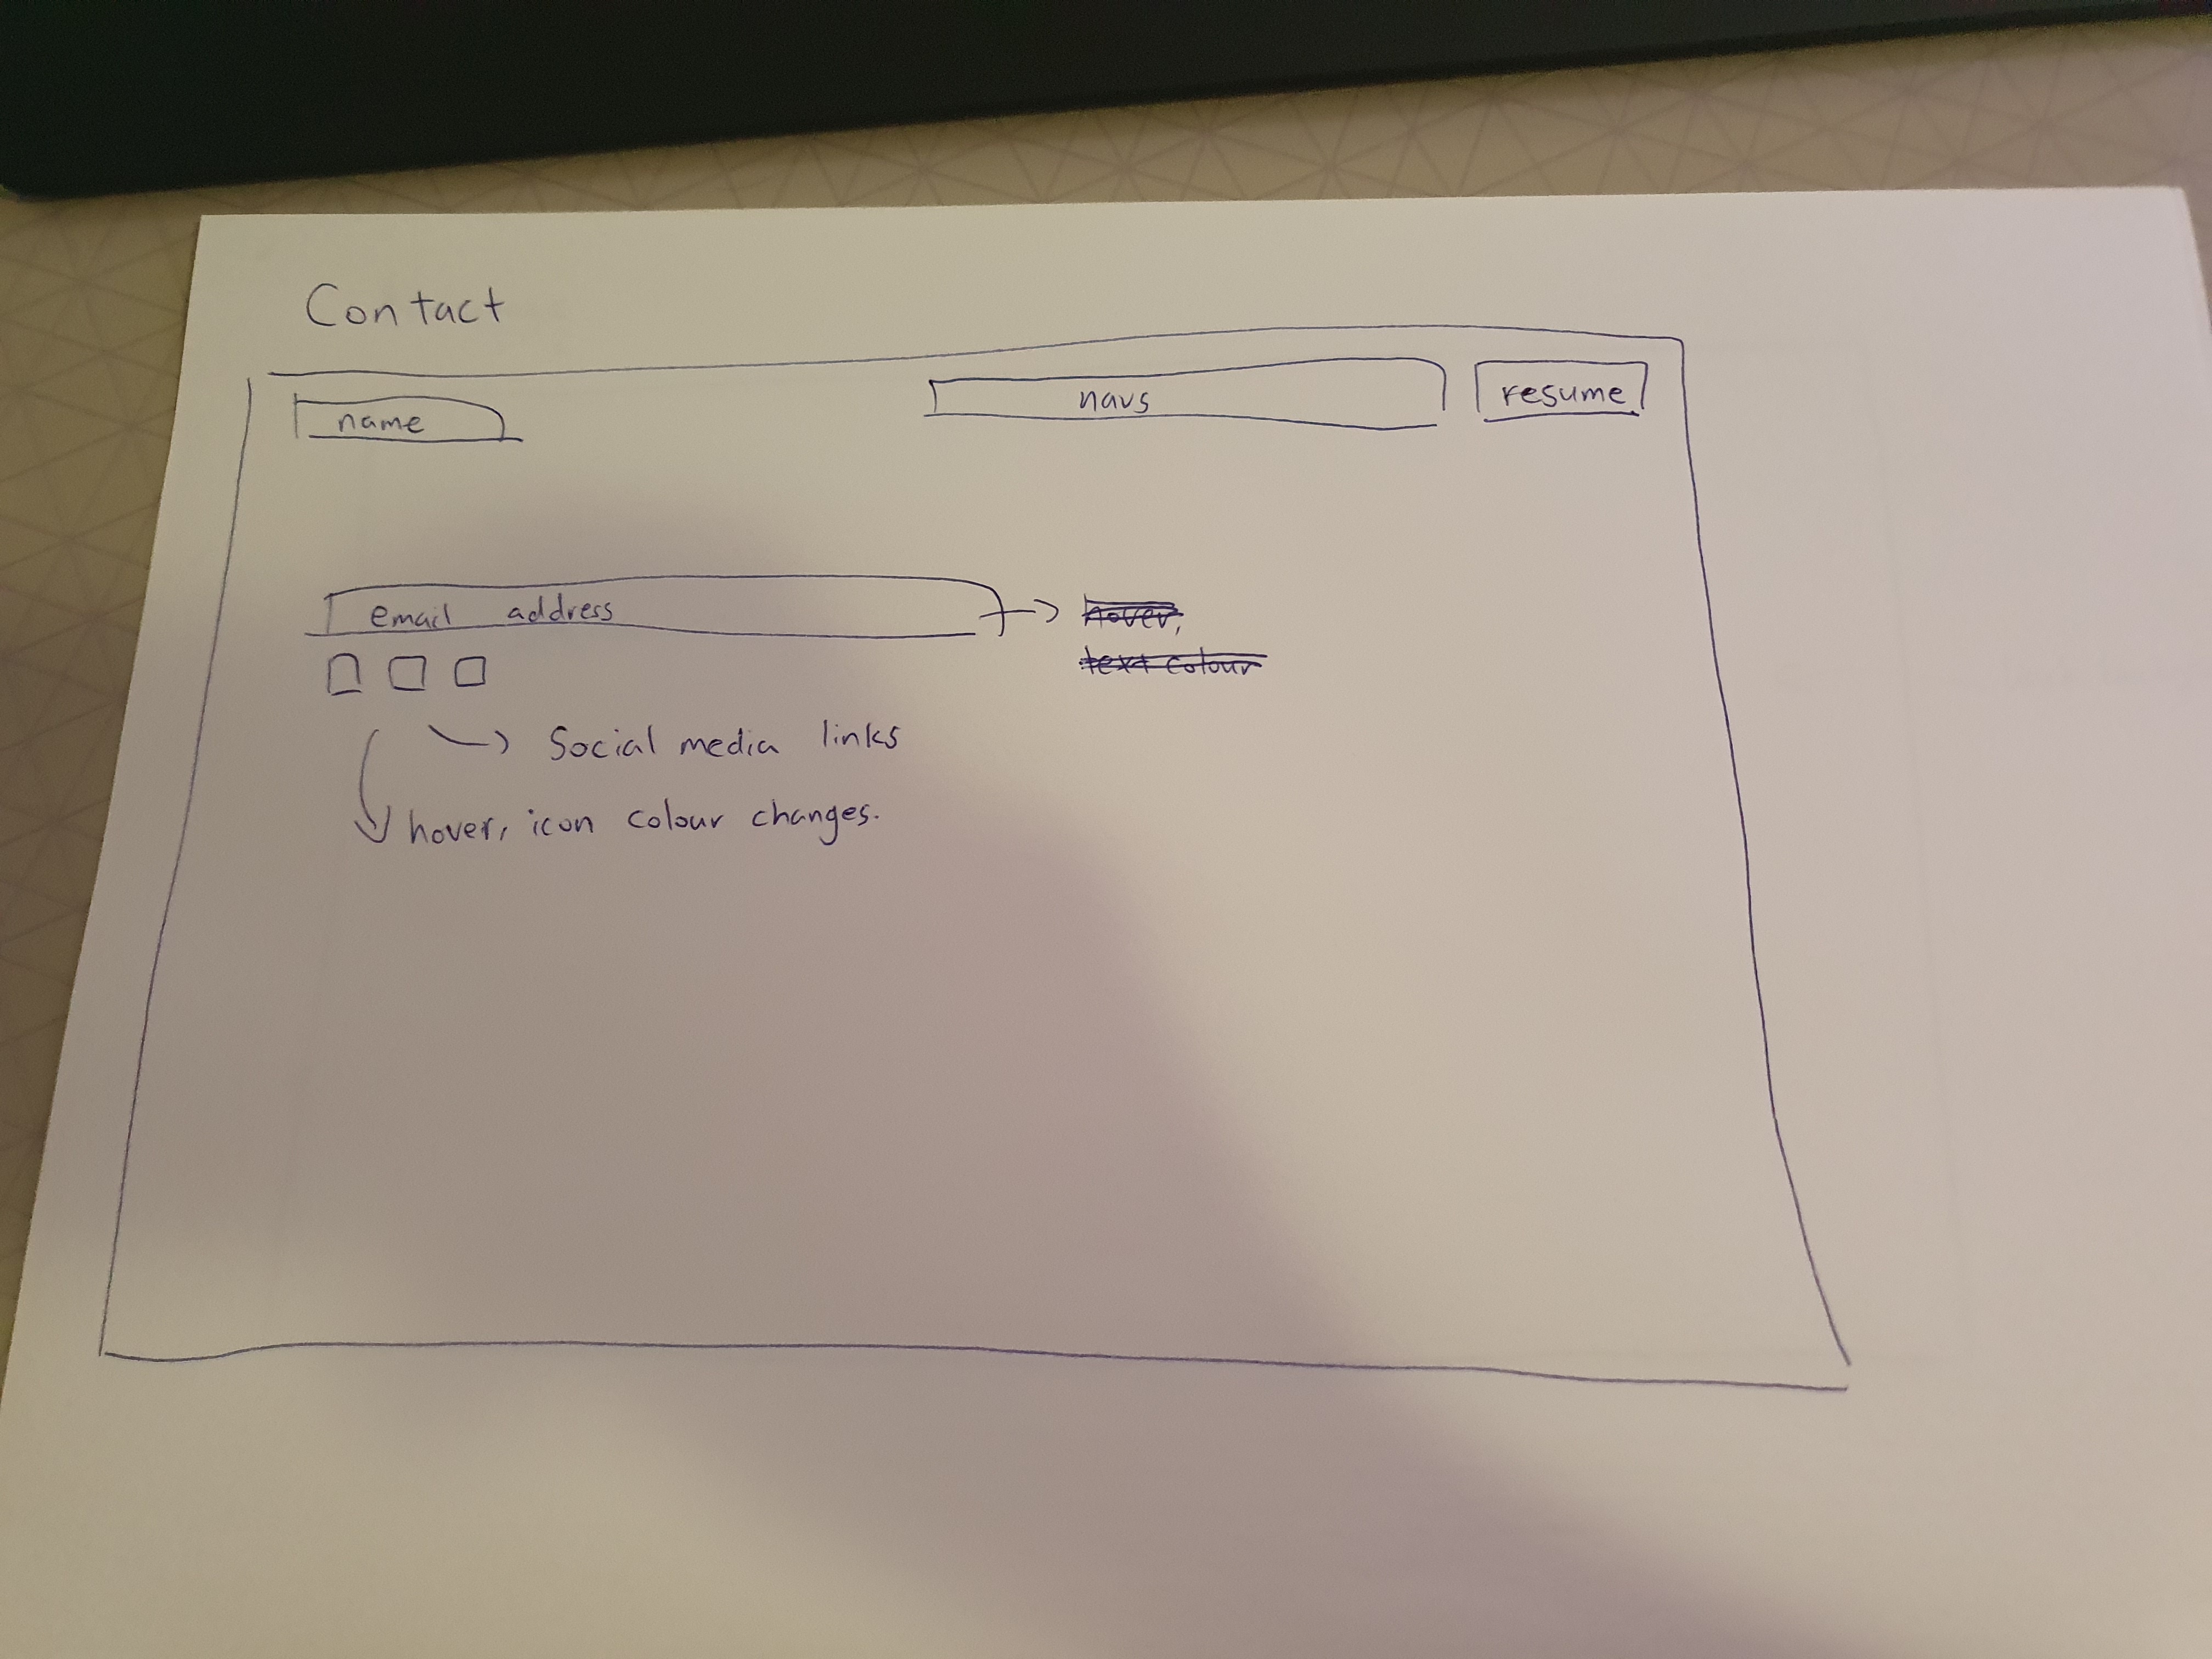 Contact
name
navs
resume
email address
hover,
text colour
Social media links
hover, icon colour changes.